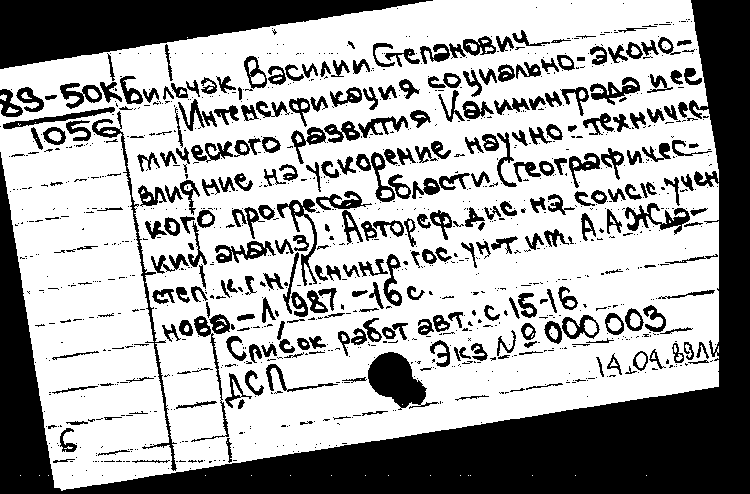 89-50К
1056
Бильчак, Василий Степанович
Интенсификация социально-эконо-
мического развития Калининграда и ее
влияние на ускорение научно-техничес-
кого прогресса области (географичес-
кий анализ): Автореф. дис. на соиск. учен
степ. к.г.н. / Ленингр. гос. ун-т им. А.А.Жда-
нова. - Л. 1987. - 16 с.
Список работ авт.: с. 15-16.
Экз № 000003
ДСП
14.04.89